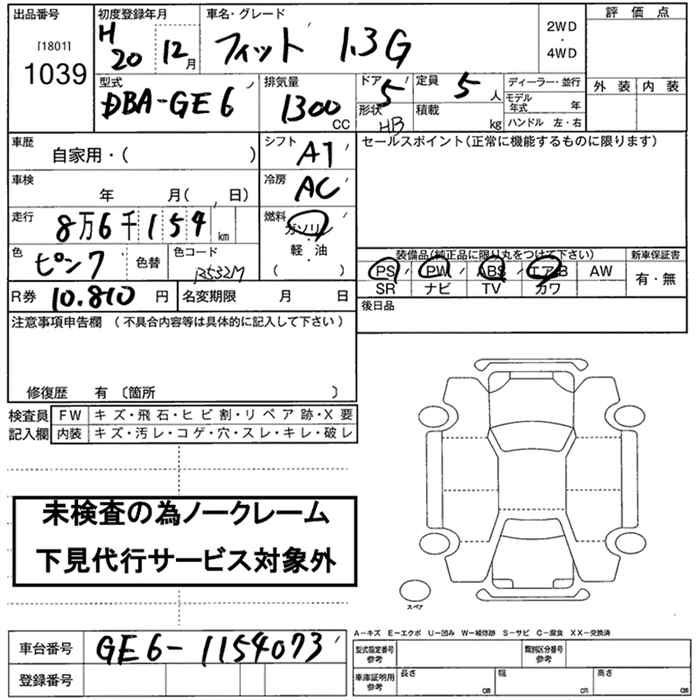 出品番号 初度登録年月 車名・グレード 評価点
[1801] 1039 H20 12月 フィット 1.3G 2WD・4WD
型式 DBA-GE6 排気量 1300 CC ドア 5 形状 HB 定員 5人 積載 kg ディーラー・並行 モデル年式 年 ハンドル 左・右 外装 内装
車歴 自家用・( ) シフト AT セールスポイント(正常に機能するものに限ります)
車検 年 月( 日) 冷房 AC
走行 8万6千154km 燃料 ガソリン 軽・油 ( )
色 ピンク 色替 色コード
装備品(純正品に限り丸をつけて下さい) 新車保証書
PS PW ABS エアB AW 有・無
SR ナビ TV カワ
R券 10.810円 名変期限 月 日 後日品
注意事項申告欄 (不具合内容等は具体的に記入して下さい)
修復歴 有〔箇所 〕
検査員記入欄 FW キズ・飛石・ヒビ割・リペア跡・X要
内装 キズ・汚レ・コゲ・穴・スレ・キレ・破レ
未検査の為ノークレーム
下見代行サービス対象外
スペア
A-キズ E-エクボ U-凹み W-補修跡 S-サビ C-腐食 XX-交換済
車台番号 GE6-1154073 型式指定番号 参考 類別区分番号 参考
登録番号 車庫証明用 参考 長さ cm 幅 cm 高さ cm